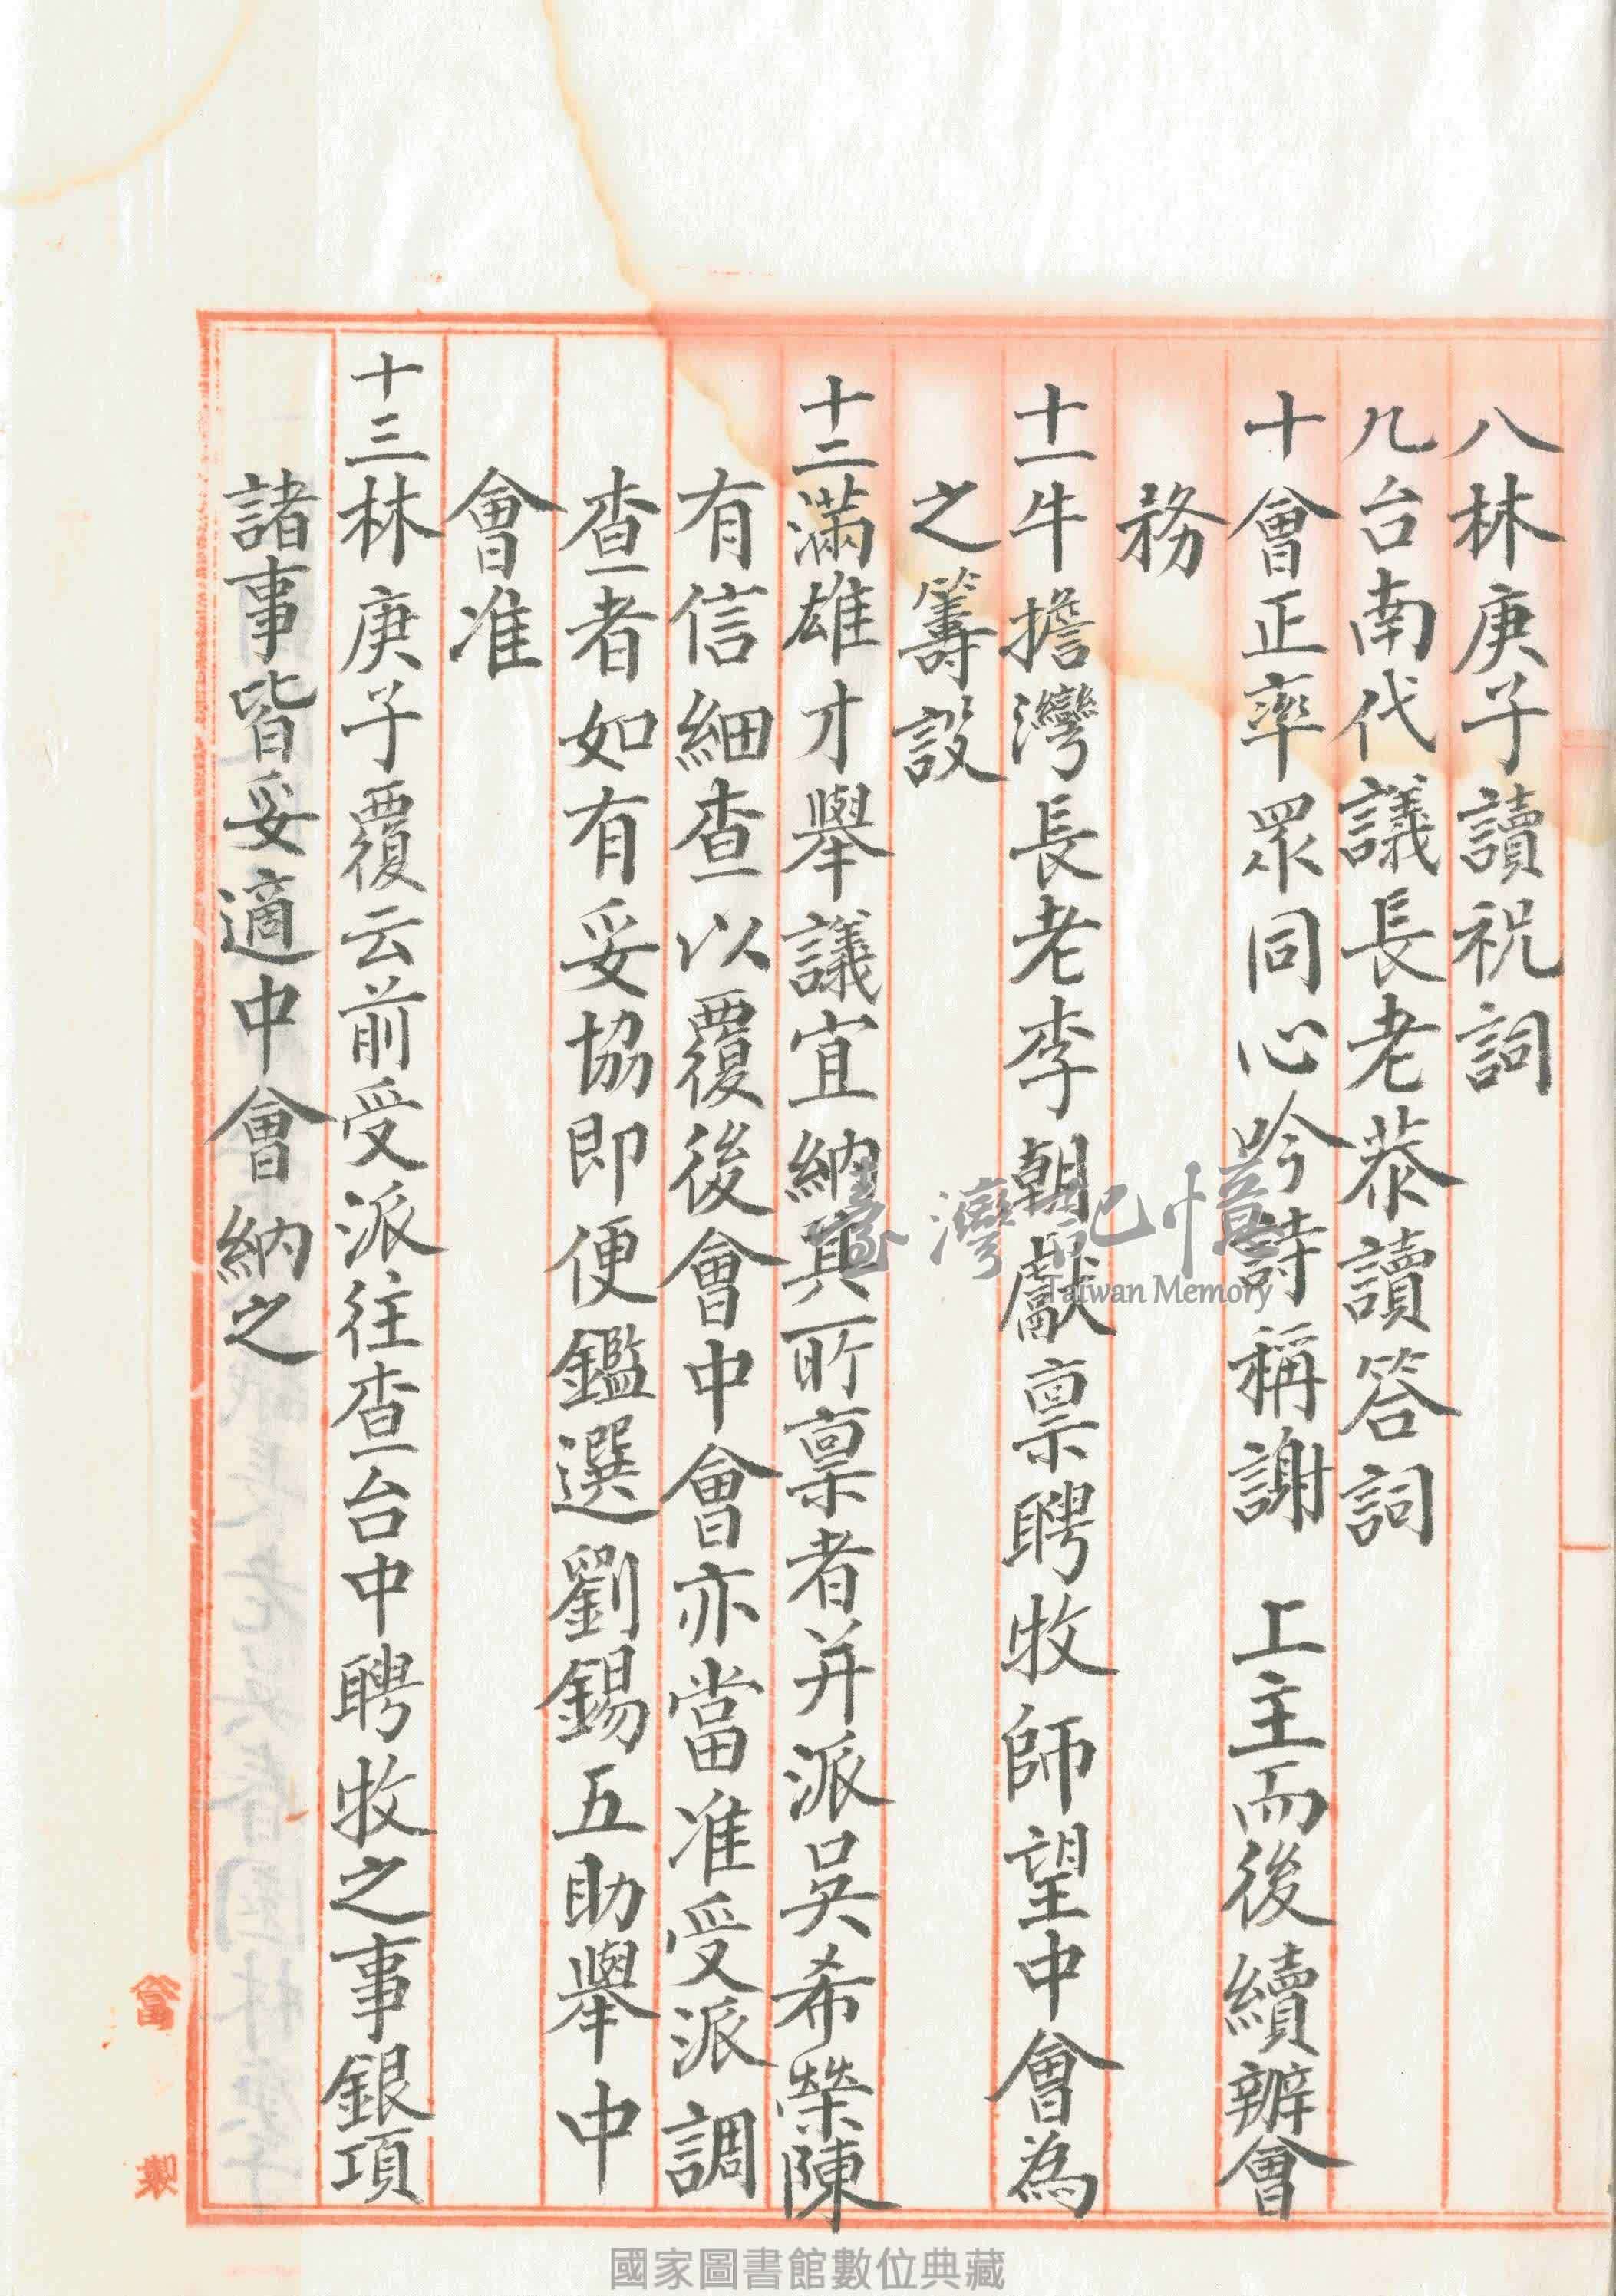 八林庚子讀祝詞
九台南代議長老恭讀答詞
十會正率眾同心吟詩稱謝　上主而後續辦會
務
十一牛擔灣長老李朝獻稟聘牧師望中會為
之籌設
十二滿雄才舉議宜納其所稟者并派吳希榮陳
有信細查以覆後會中會亦當准受派調
查者如有妥協即便鑑選劉錫五助舉中
會准
十三林庚子覆云前受派往查台中聘牧之事銀項
諸事皆妥適中會納之
臺灣記憶
Taiwan Memory
國家圖書館數位典藏